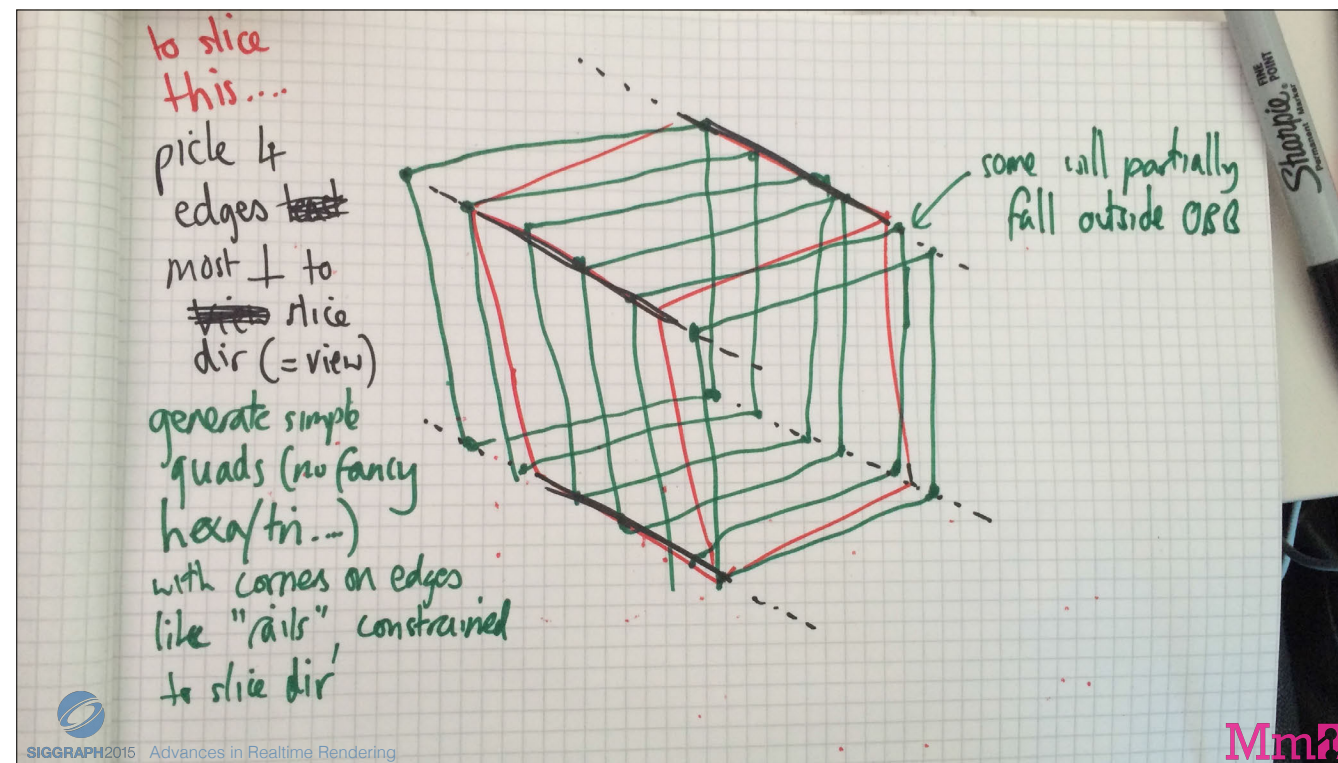 to slice
this....
pick 4
edges
most ⊥ to
slice
dir (= view)
generate simple
quads (no fancy
hexa/tri...)
with corners on edges
like "rails", constrained
to slice dir
some will partially
fall outside OBB
Sharpie
FINE
POINT
Permanent Marker
SIGGRAPH2015 Advances in Realtime Rendering
Mm